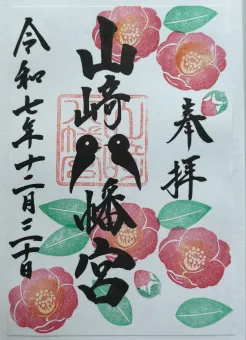 奉拝
山崎八幡宮
令和七年十二月三十日